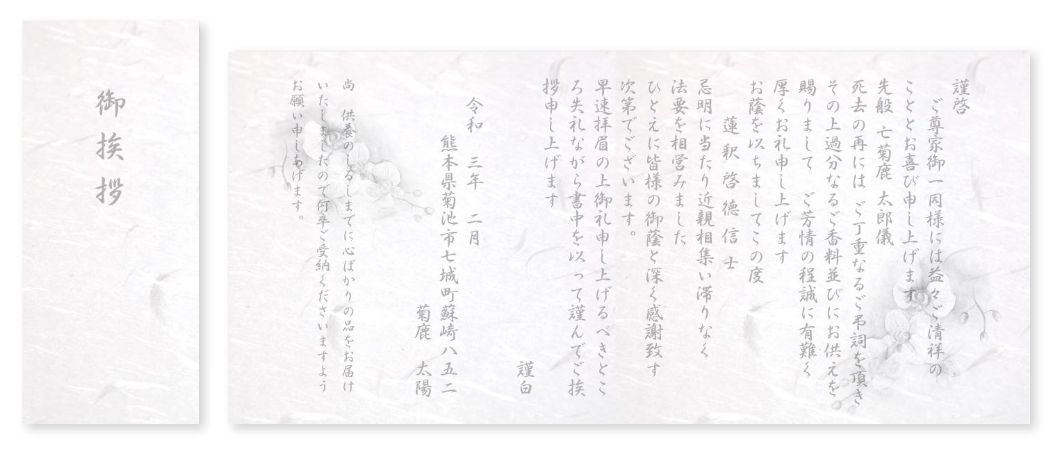 御挨拶
謹啓
ご尊家御一同様には益々ご清祥の
こととお喜び申し上げます
先般 亡菊鹿 太郎儀
死去の再には ご丁重なるご弔詞を頂き
その上過分なるご香料並びにお供えを
賜りまして ご芳情の程誠に有難く
厚くお礼申し上げます
お蔭を以ちましてこの度
蓮釈啓徳信士
忌明に当たり近親相集い滞りなく
法要を相営みました
ひとえに皆様の御蔭と深く感謝致す
次第でございます。
早速拝眉の上御礼申し上げるべきとこ
ろ失礼ながら書中を以って謹んでご挨
拶申し上げます
謹白
令和 三年 二月
熊本県菊池市七城町蘇崎八五二
菊鹿 太陽
尚 供養のしるしまでに心ばかりの品をお届け
いたしましたので何卒ご受納くださいますよう
お願い申しあげます。